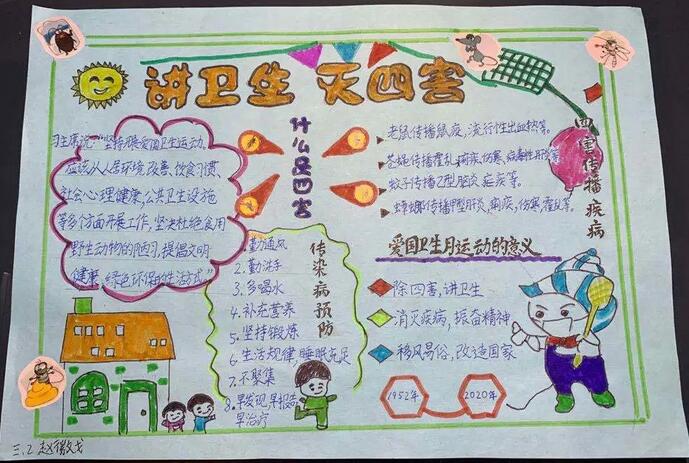 讲卫生 灭四害
习主席说:"坚持开展爱国卫生运动,
应该从人居环境改善、饮食习惯、
社会心理健康,公共卫生设施
等多个方面开展工作,坚决杜绝食用
野生动物的陋习,提倡文明
健康、绿色环保的生活方式。"
什么是四害
老鼠传播鼠疫,流行性出血热等。
苍蝇传播霍乱,痢疾,伤寒,病毒性肝炎等。
蚊子传播乙型脑炎,疟疾等。
蟑螂传播甲型肝炎,痢疾,伤寒,霍乱等。
四害传播疾病
传染病预防
1.勤通风
2.勤洗手
3.多喝水
4.补充营养
5.坚持锻炼
6.生活规律,睡眠充足
7.不聚集
8.早发现,早报告
早治疗
爱国卫生月运动的意义
除四害,讲卫生
消灭疾病,振奋精神
移风易俗,改造国家
1952年
2020年
三.2